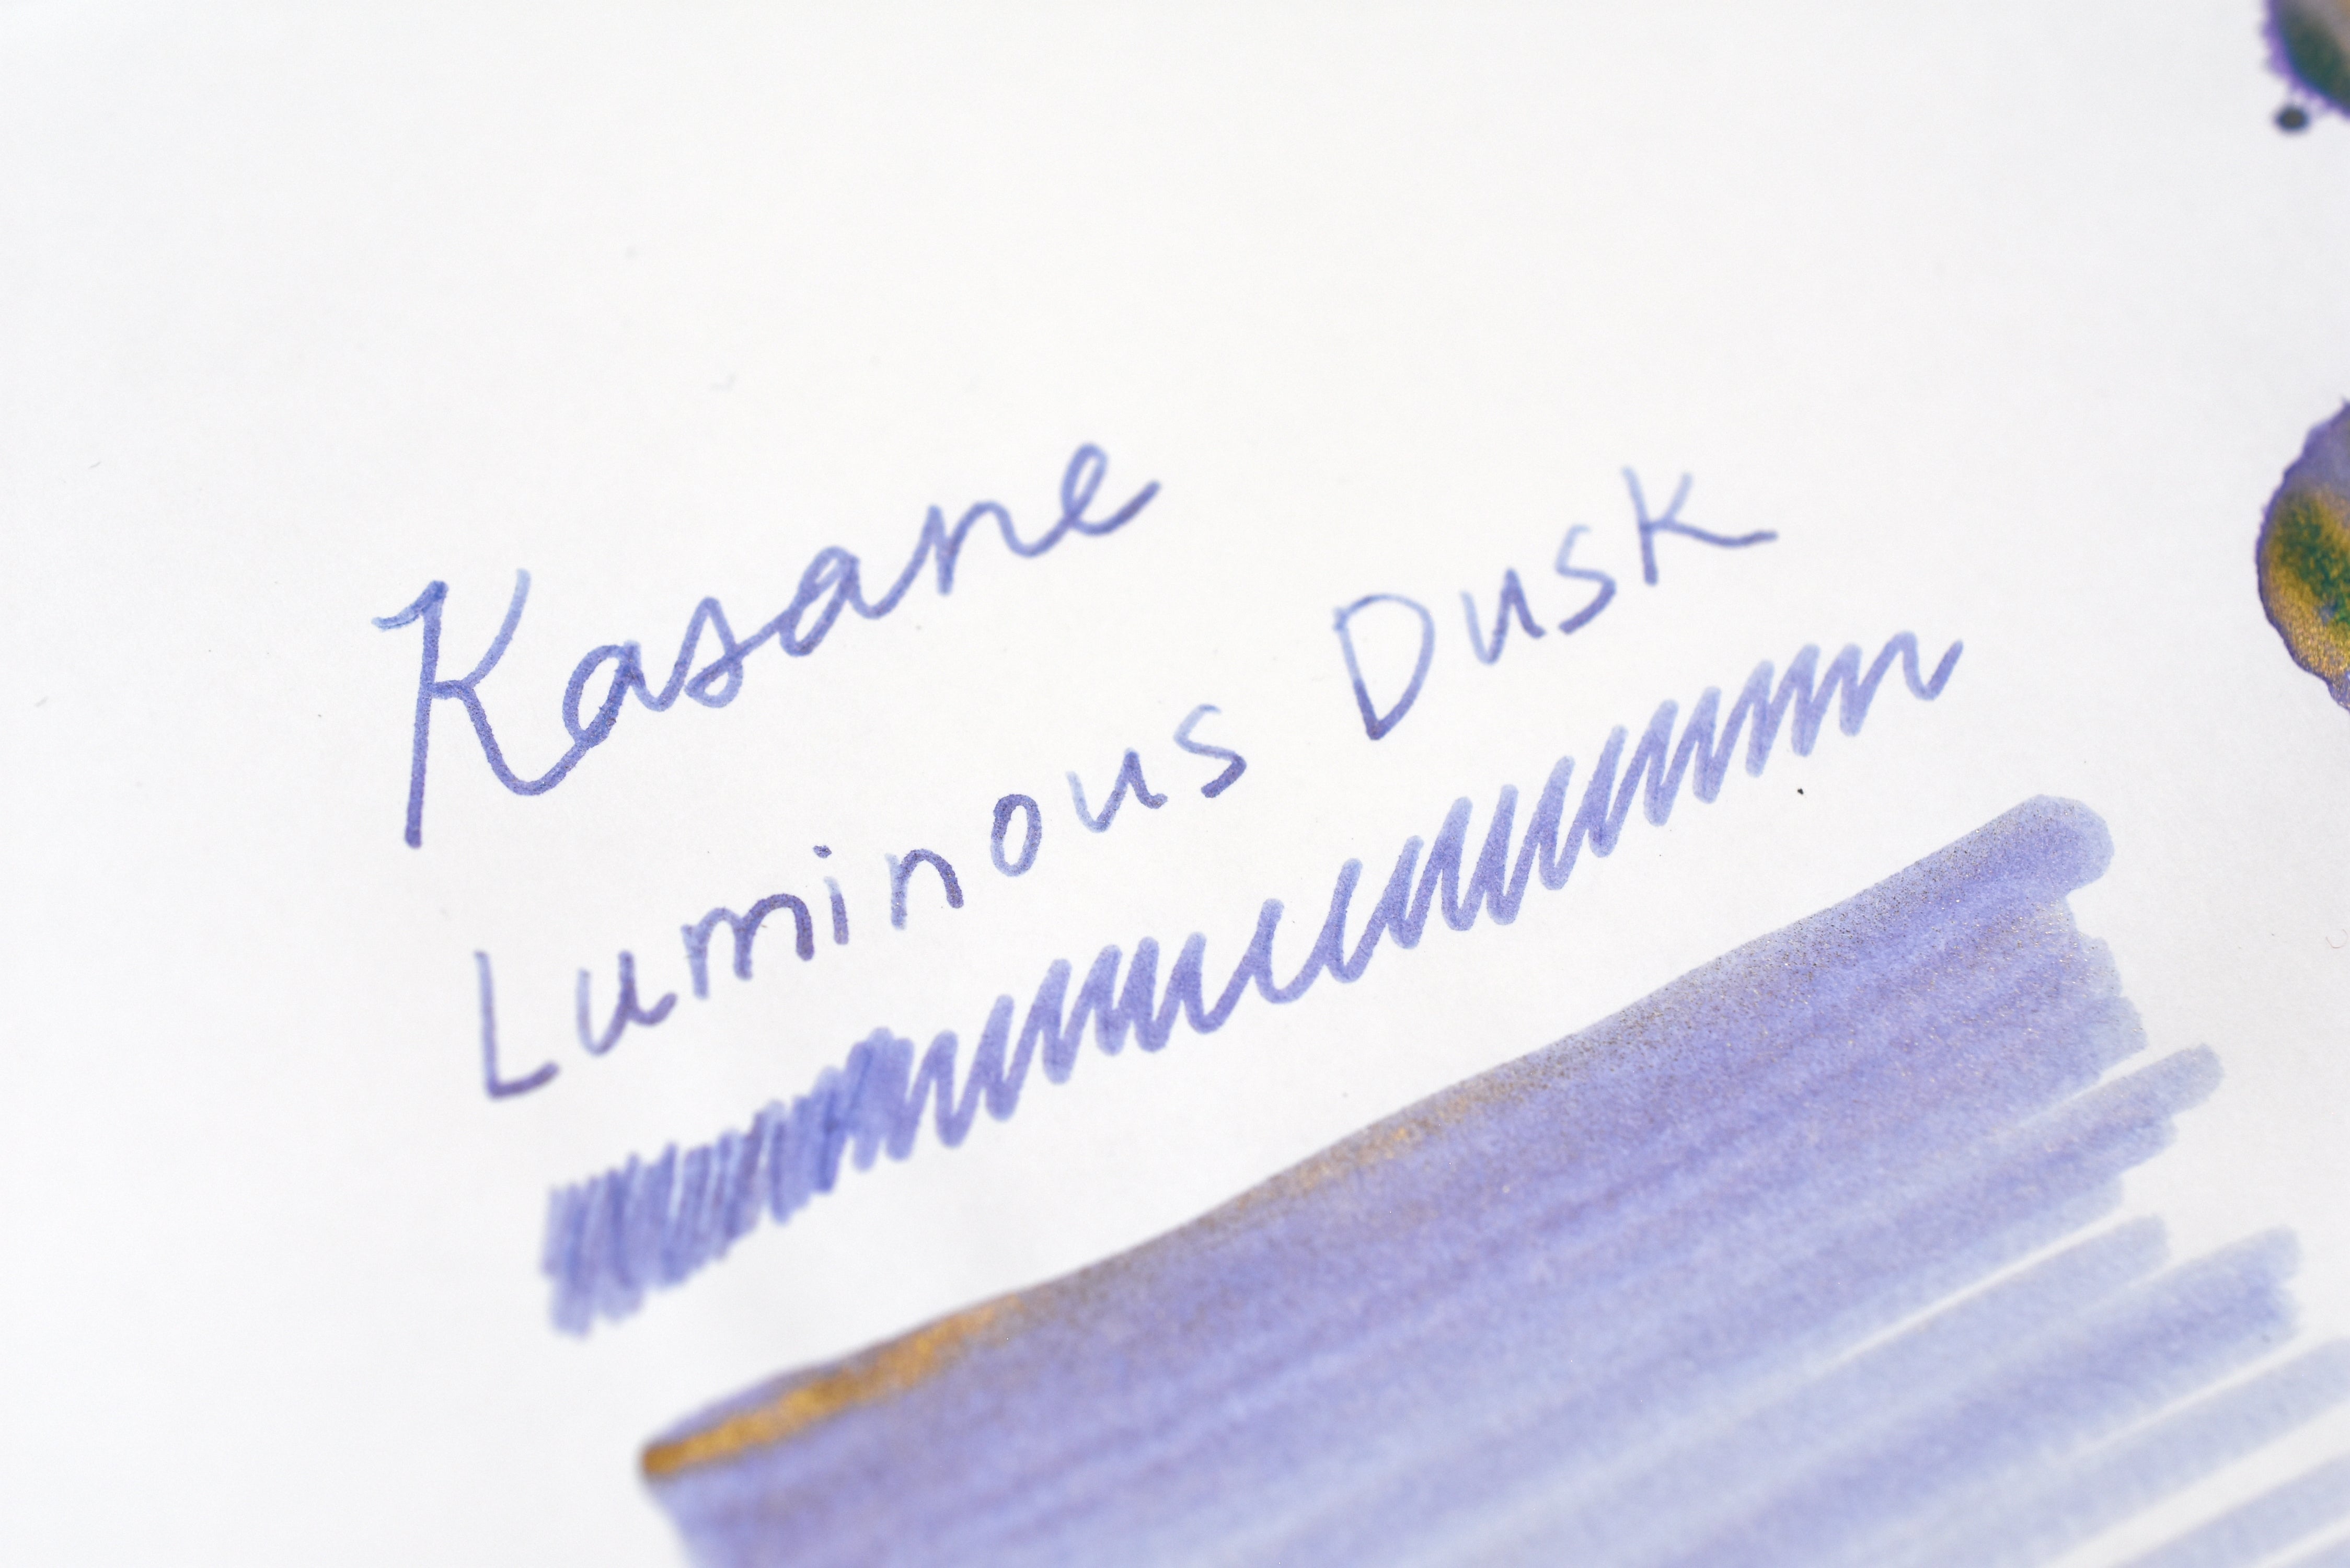 Kasane
Luminous Dusk